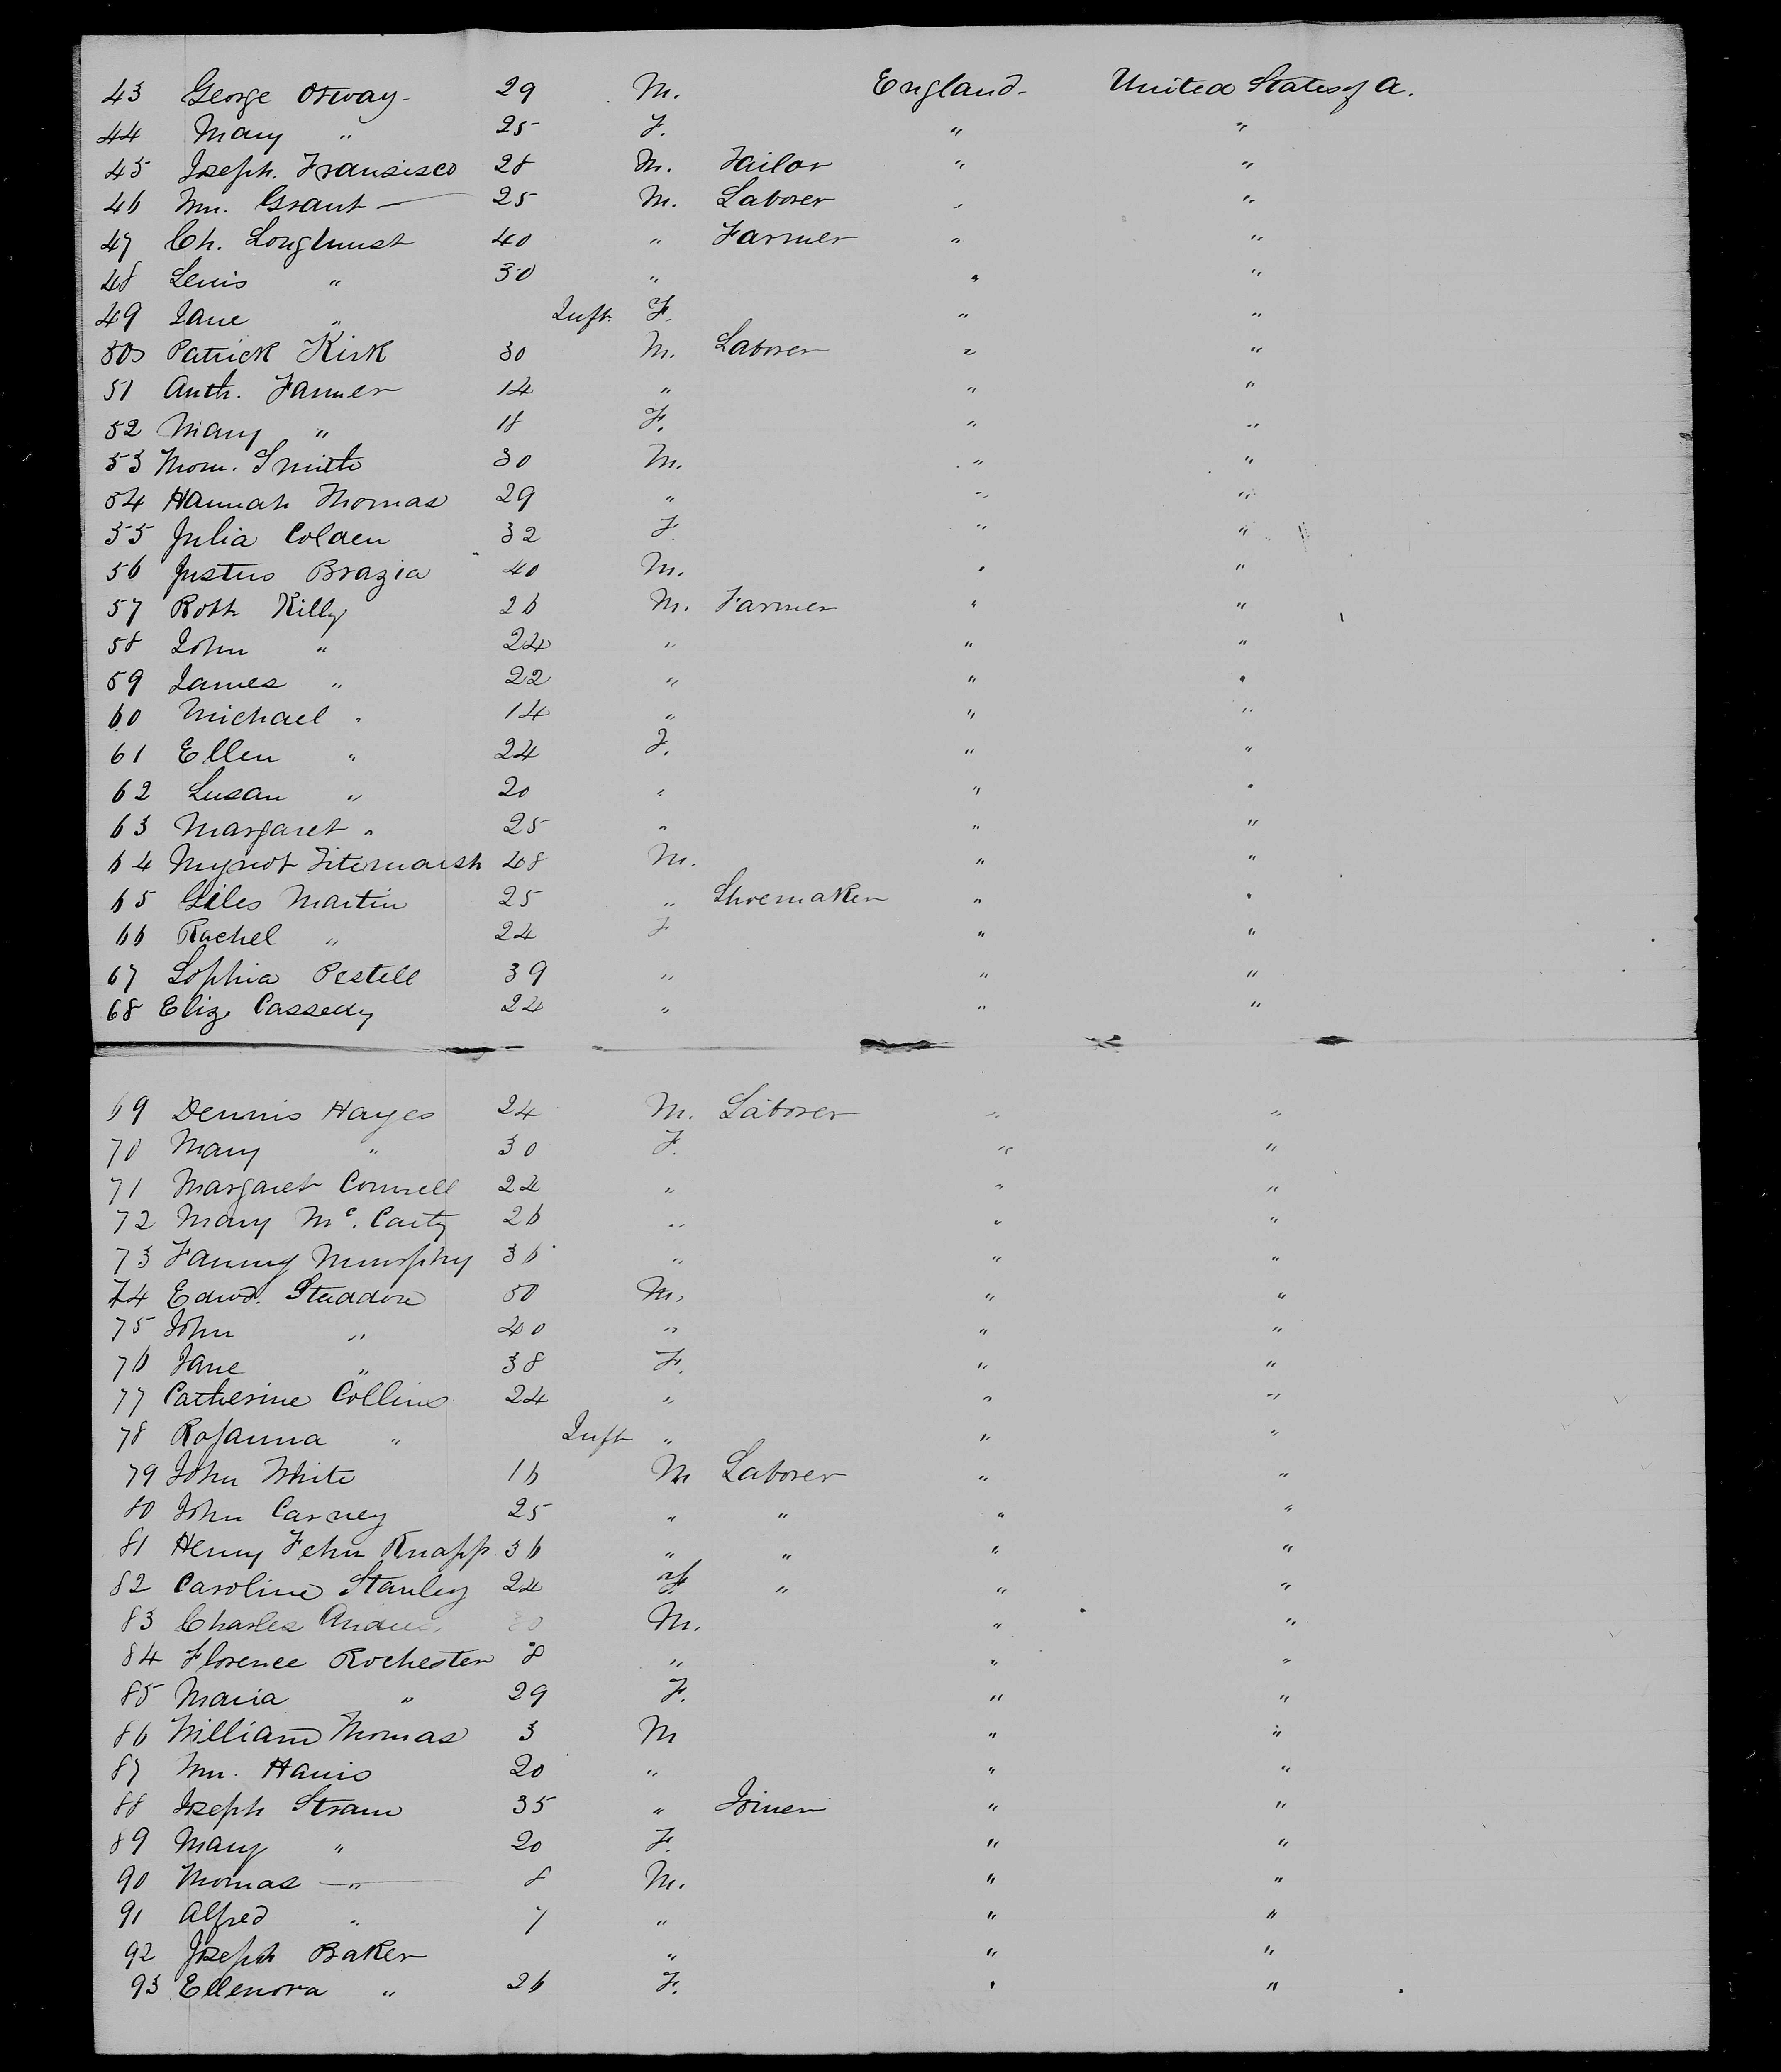 43 George Otway 29 M. England United States of A.
44 Mary " 25 F. " "
45 Joseph. Fransisco 28 M. Tailor " "
46 Wm. Grant 25 M. Laborer " "
47 Ch. Longhurst 40 " Farmer " "
48 Lewis " 30 " " "
49 Jane " Inft. F. " "
50 Patrick Kirk 30 M. Laborer " "
51 Anth. Farmer 14 " " "
52 Mary " 18 F. " "
53 Thom. Smith 30 M. " "
54 Hannah Thomas 29 " " "
55 Julia Colden 32 F " "
56 Justus Brazia 40 M. " "
57 Robt Killy 26 M. Farmer " "
58 John " 24 " " "
59 James " 22 " " "
60 Michael " 14 " " "
61 Ellen " 24 F. " "
62 Susan " 20 " " "
63 Margaret " 25 " " "
64 Mynot Titermarsh 48 M. " "
65 Giles Martin 25 " Shoemaker " "
66 Rachel " 24 F " "
67 Sophia Pestell 39 " " "
68 Eliz. Cassedy 24 " " "
69 Dennis Hayes 24 M. Laborer " "
70 Mary " 30 F. " "
71 Margaret Connell 24 " " "
72 Mary Mc. Carty 26 " " "
73 Fanny Murphy 36 " " "
74 Edwd. Staddon 50 M. " "
75 John " 40 " " "
76 Jane " 38 F. " "
77 Catherine Collins 24 " " "
78 Rosanna " Inft " " "
79 John White 16 M Laborer " "
80 John Carney 25 " " " "
81 Henry Fehn Knapp 36 " " " "
82 Caroline Stanley 24 F. " " "
83 Charles 30 M. " "
84 Florence Rochester 8 " " "
85 Maria " 29 F. " "
86 William Thomas 3 M " "
87 Wm. Harris 20 " " "
88 Joseph Stram 35 " Joiner " "
89 Mary " 20 F. " "
90 Thomas " 8 M. " "
91 Alfred " 7 " " "
92 Joseph Baker " " "
93 Ellenora " 26 F. " "